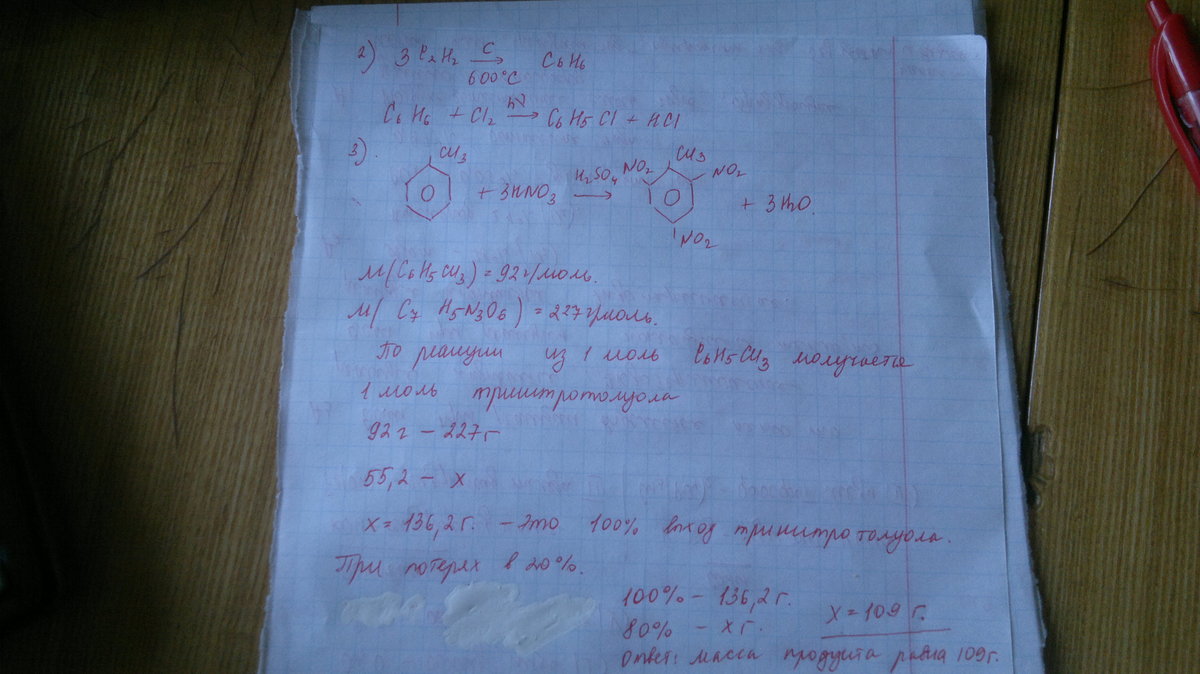 2) 3 C₂H₂ C → 600°C C₆H₆
C₆H₆ + Cl₂ hν → C₆H₅Cl + HCl
3).
CH₃ + 3HNO₃ H₂SO₄ → NO₂ CH₃ NO₂ NO₂ + 3H₂O.
M(C₆H₅CH₃) = 92 г/моль.
M( C₇ H₅N₃O₆ ) = 227 г/моль.
По реакции из 1 моль C₆H₅CH₃ получается
1 моль тринитротолуола
92 г – 227 г
55,2 – x
x = 136,2 г. – это 100% выход тринитротолуола.
При потерях в 20%.
100% – 136,2 г.
80% – x г.
x = 109 г.
Ответ: масса продукта равна 109 г.